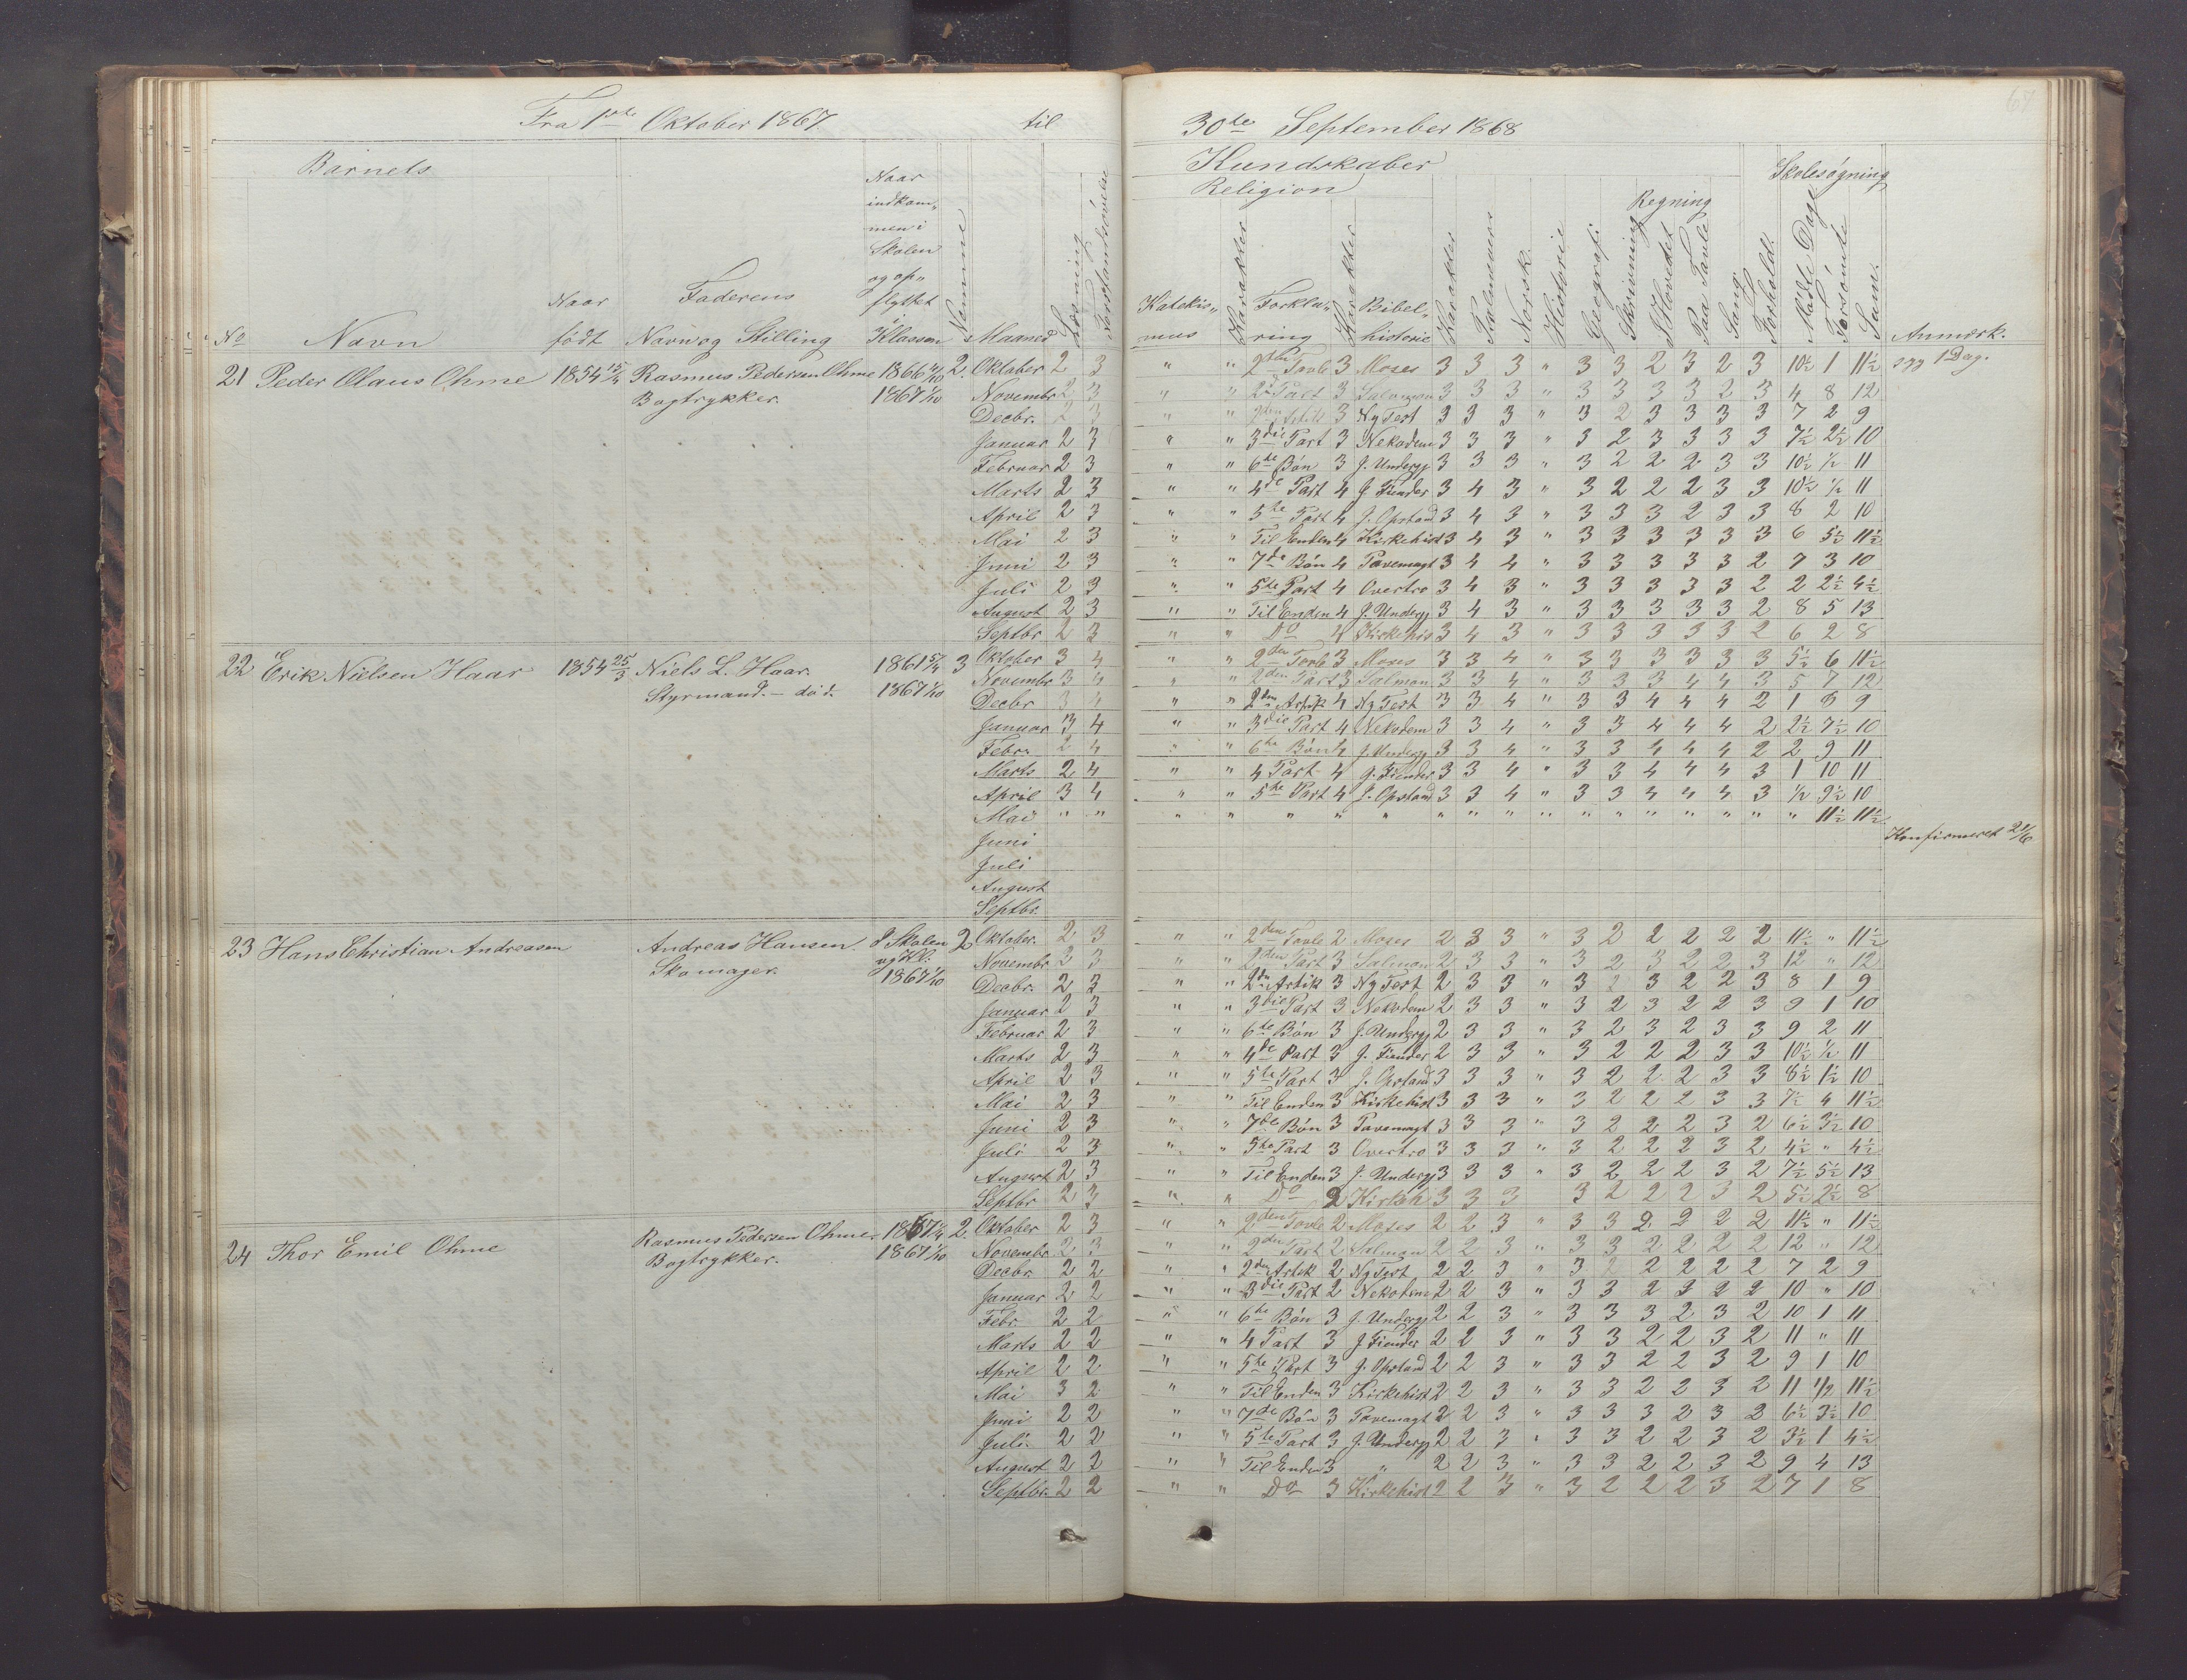 67
Fra 1ste Oktober 1867. til 30te September 1868
Barnets
Kundskaber
Skolesøgning
Religion
Regning
No
Navn
Naar født
Faderens Navn og Stilling
Naar indkommen i Skolen og opflyttet i Klassen
Nemme
Maaned
Læsning
Forstandsøvelse
Katekismus
Karakter
Forklaring
Karakter
Bibelhistorie
Karakter
Salmevers
Norsk
Historie
Geografi
Skrivning
I Hovedet
Paa Tavle
Sang
Forhold
Mødte Dage
Forsømte
Sum.
Anmærk.
21 Peder Olaus Ohme 1854 Rasmus Pedersen Ohme 1866 2. Oktober 2 3 " " 2den Tavle 3 Moses 3 3 3 " 3 3 2 3 2 3 10½ 1 11½ syg 1 Dag.
Bogtrykker. 1867 1/10 Novembr 2 3 " " 2d Part 3 Salomon 3 3 3 " 3 3 3 3 2 3 4 8 12
Decbr. 2 3 " " 2den Artik 3 Ny Test 3 3 3 " 3 2 3 3 3 3 7 2 9
Januar 2 3 " " 3die Part 3 Nekodem 3 3 3 " 3 2 3 3 3 3 7½ 2½ 10
Februar 2 3 " " 6te Bøn 3 J. Undergj 3 3 3 " 3 2 2 2 3 3 10½ ½ 11
Marts 2 3 " " 4de Part 4 J. Fiender 3 4 3 " 3 2 2 2 3 3 10½ ½ 11
April 2 3 " " 5te Part 4 J. Opstand 3 4 3 " 3 3 3 2 3 3 8 2 10
Mai 2 3 " " Til Enden 4 Kirkehist 3 4 3 " 3 3 3 3 3 3 6 5½ 11½
Juni 2 3 " " 7de Bøn 4 Pavemagt 3 4 4 " 3 3 3 3 3 2 7 3 10
Juli 2 3 " " 5te Part 4 Overtro 3 4 3 " 3 3 3 3 3 2 2 2½ 4½
August 2 3 " " Til Enden 4 J. Undergj 3 4 3 " 3 3 3 3 3 2 8 5 13
Septbr 2 3 " " Do 4 Kirkehis 3 4 3 " 3 3 3 3 3 2 6 2 8
22 Erik Nielsen Haar 1854 25/3 Niels L. Haar 1861 5/4 3 Oktober 3 4 " " 2den Tavle 3 Moses 3 3 4 " 3 3 3 3 3 3 5½ 6 11½
Styrmand. - død. 1867 1/10 Novembr 3 4 " " 2den Part 3 Salmon 3 3 4 " 3 3 3 4 4 3 5 7 12
Decbr 3 4 " " 2den Artik 4 Ny Test 3 3 4 " 3 3 4 4 4 2 1 8 9
Januar 3 4 " " 3die Part 4 Nekodem 3 3 4 " 3 3 4 4 4 2 2½ 7½ 10
Febr. 2 4 " " 6te Bøn 4 J. Undergj 3 3 4 " 3 3 4 4 4 2 2 9 11
Marts 2 4 " " 4 Part 4 J. Fiender 3 3 4 " 3 3 4 4 4 3 1 10 11
April 3 4 " " 5te Part 4 J. Opstand 3 3 4 " 3 3 4 4 4 3 ½ 9½ 10
Mai " " " " " " " " " " " " " " " " " " 11½ 11½
Juni Konfirmeret 21/6
Juli
August
Septbr.
23 Hans Christian Andreasen Andreas Hansen. I Skolen 2 Oktober. 2 3 " " 2den Tavle 2 Moses 2 3 3 " 3 2 2 2 2 2 11½ " 11½
Skomager. og Kl. Novembr 2 3 " " 2den Part 3 Salmon 2 3 3 " 3 2 3 2 2 3 12 " 12
1867 1/10 Decbr. 2 3 " " 2den Artik 3 Ny Test 2 3 3 " 3 2 3 2 2 3 8 1 9
Januar 2 3 " " 3die Part 3 Nekodem 2 3 3 " 3 2 3 2 2 3 9 1 10
Februar 2 3 " " 6te Bøn 3 J. Undergj 2 3 3 " 3 2 3 2 3 3 9 2 11
Marts 2 3 " " 4de Part 3 J. Fiender 2 3 3 " 3 2 2 2 3 3 10½ ½ 11
April 2 3 " " 5te Part 3 J. Opstand 3 3 3 " 3 2 2 2 3 3 8½ 1½ 10
Mai 2 3 " " Til Enden 3 Kirkehist 3 3 3 " 3 2 2 2 3 3 7½ 4 11½
Juni 2 3 " " 7de Bøn 3 Pavemagt 3 3 3 " 3 2 2 2 3 2 6½ 3½ 10
Juli 2 3 " " 5te Part 3 Overtro 3 3 3 " 3 2 2 2 3 2 4½ " 4½
August 2 3 " " Til Enden 3 J. Undergj 3 3 3 " 3 2 2 2 3 2 7½ 5½ 13
Septbr 2 3 " " Do 2 Kirkeh 3 3 3 3 2 2 2 3 2 5½ 2½ 8
24 Thor Emil Ohme Rasmus Pedersen Ohme. 1867 2. Oktober 2 3 " " 2den Tavle 2 Moses 2 2 3 " 3 3 2 2 2 2 11½ " 11½
Bogtrykker. 1867 1/10 Novembr 2 3 " " 2den Part 2 Salmon 2 2 3 " 3 3 2 2 2 2 12 " 12
Decbr 2 2 " " 2den Artek 2 Ny Test 2 2 3 " 3 2 2 2 2 2 7 2 9
Januar 2 2 " " 3die Part 2 Nekodem 2 2 3 " 3 3 2 2 2 2 10 " 10
Febr. 2 2 " " 6te Bøn 3 J. Undergj 2 2 3 " 3 3 3 2 3 2 10 1 11
Marts 2 2 " " 4 Part 3 J Fiender 2 2 3 " 3 3 2 2 3 2 11 " 11
April 2 2 " " 5te Part 3 J. Opstand 2 2 3 " 3 3 2 2 3 2 9 1 10
Mai 3 2 " " Til Enden 3 Kirkehist 2 2 3 " 3 3 2 2 3 2 11 1/2 11½
Juni 2 2 " " 7de Bøn 3 Pavemagt 2 2 3 " 3 3 3 2 3 2 6½ 3½ 10
Juli. 2 2 " " 5te Part 3 J. Undergj 2 2 3 " 3 3 2 2 3 2 3½ 1 4½
August 2 2 " " Til Enden 3 " 2 2 3 " 3 3 2 2 3 2 9 4 13
Septbr. 2 2 " " Do 3 Kirkehist 2 2 3 " 3 2 2 2 3 2 7 1 8